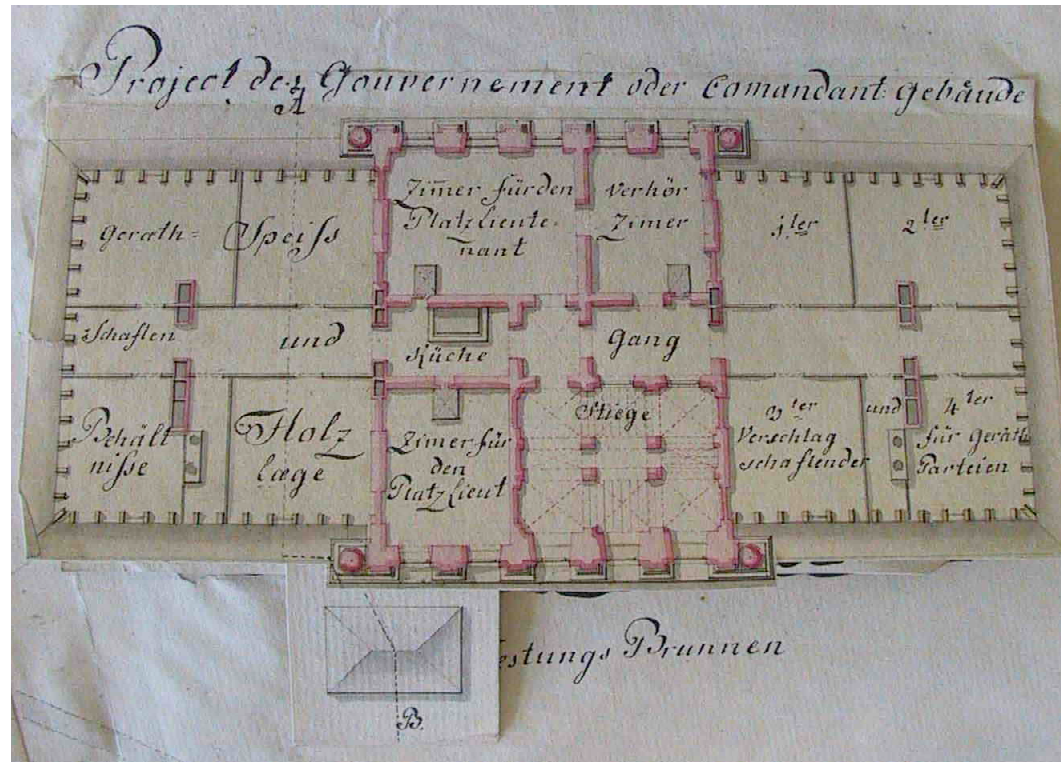 Project des Gouvernement oder Comandant Gebäude
A
Geräth=
Speiss
Zim̄er für den
Platzlieute=
nant
Verhör
Zimer
1ter
2ter
schaften
und
Küche
Gang
Behält
nisse
Holz
læge
Zimer für
den
Platzlieut
Stiege
3ter
Verschlag
schaftender
und
4ter
für Geräth
Parteien
estungs Brunnen
B.